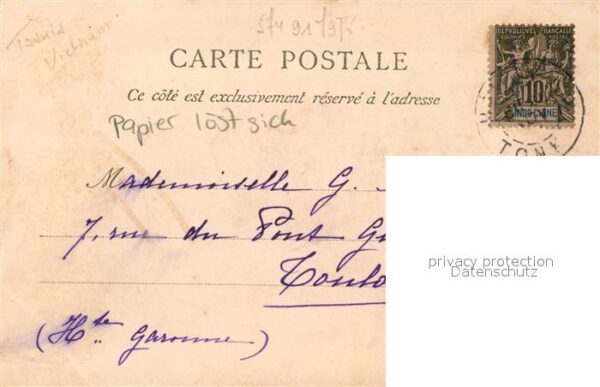 574 91/975
Vietnam
RÉPUBLIQUE FRANÇAISE
COLONIES POSTES
10
INDO-CHINE
TONK
CARTE POSTALE
Ce côté est exclusivement réservé à l'adresse
Papier löst sich
Mademoiselle G.
7, rue du Pont Gu
Toulo
(Hte Garonne)
privacy protection
Datenschutz